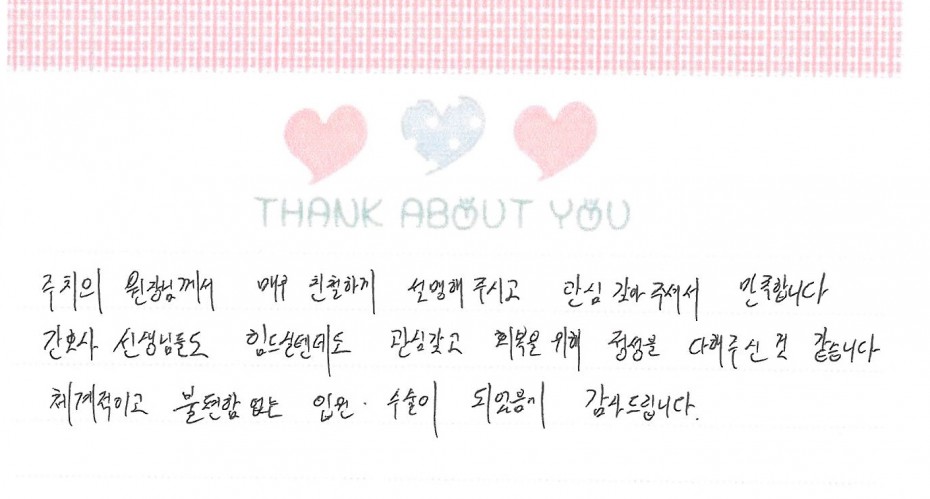 THANK ABOUT YOU
주치의 원장님께서 매우 친절하게 설명해 주시고 관심 갖아 주셔서 만족합니다
간호사 선생님들도 힘드실텐데도 관심갖고 회복을 위해 정성을 다해주신 것 같습니다
체계적이고 불편함 없는 입원·수술이 되었음에 감사드립니다.